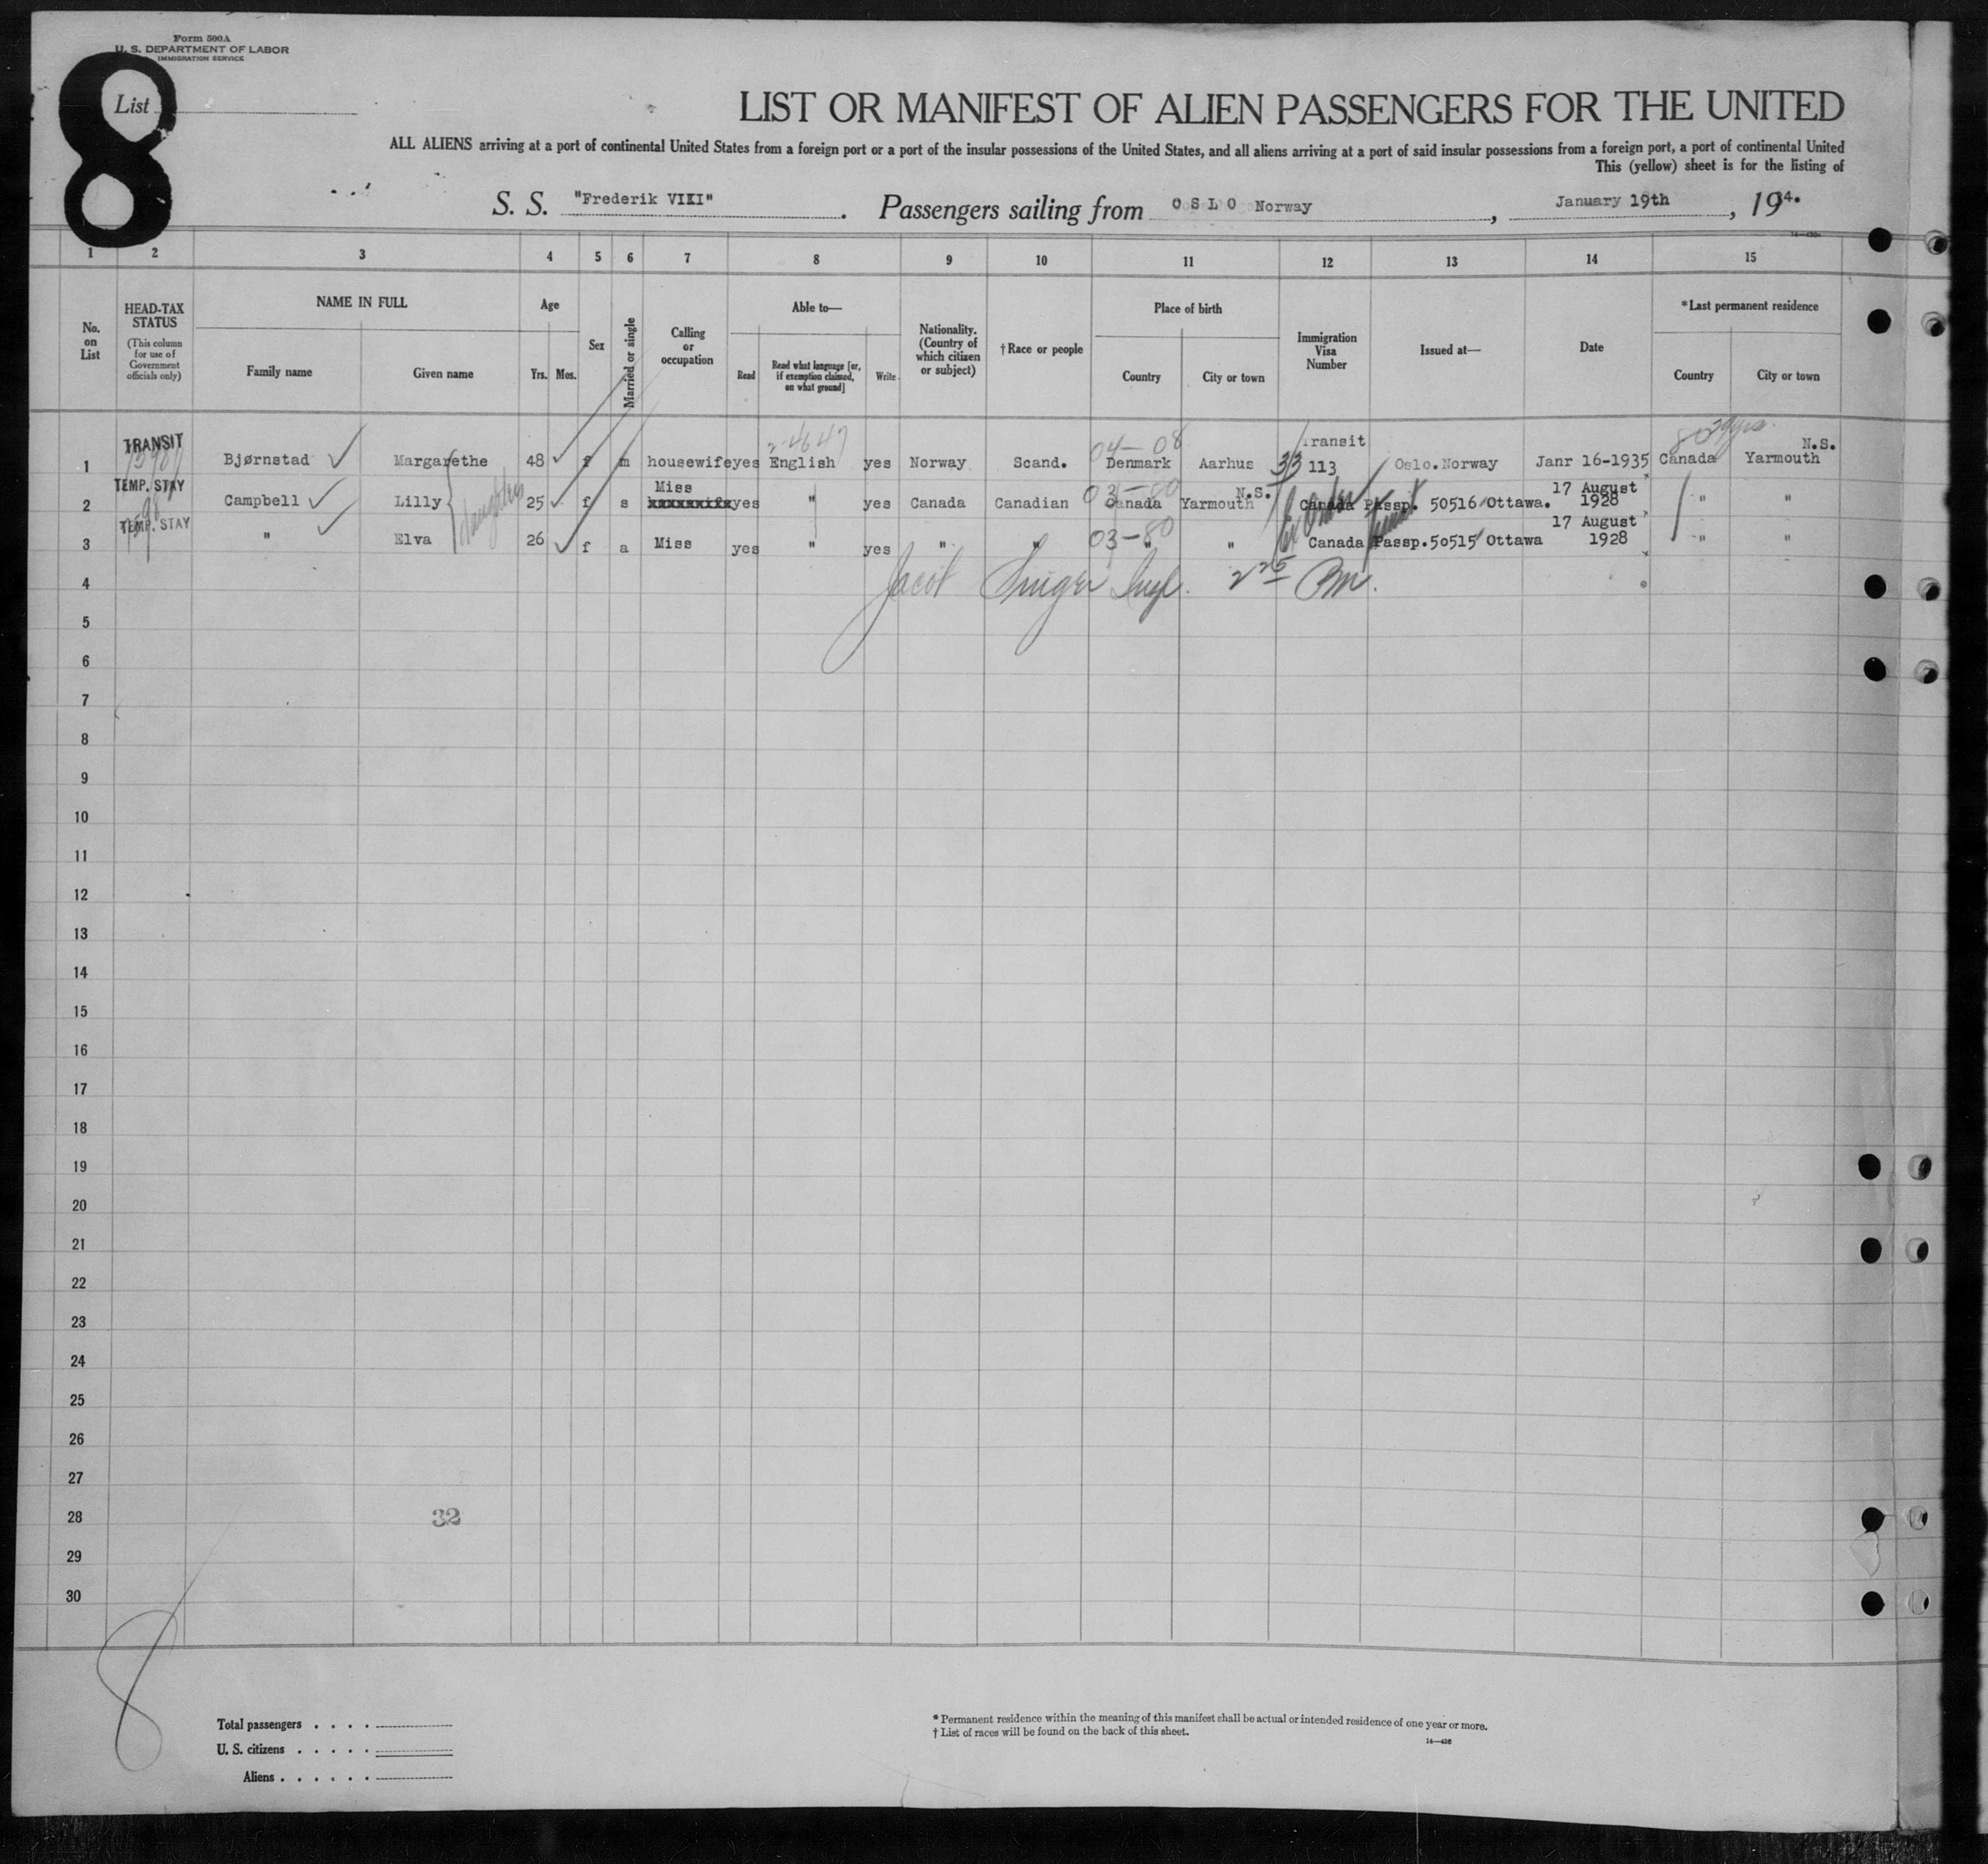 Form 500A
U. S. DEPARTMENT OF LABOR
IMMIGRATION SERVICE
8
List
LIST OR MANIFEST OF ALIEN PASSENGERS FOR THE UNITED
ALL ALIENS arriving at a port of continental United States from a foreign port or a port of the insular possessions of the United States, and all aliens arriving at a port of said insular possessions from a foreign port, a port of continental United
This (yellow) sheet is for the listing of
S. S. "Frederik VIII" . Passengers sailing from O S L O Norway , January 19th , 194.
1 2 3 4 5 6 7 8 9 10 11 12 13 14 15
No. on List
HEAD-TAX STATUS
(This column for use of Government officials only)
NAME IN FULL
Family name Given name
Age
Yrs. Mos.
Sex
Married or single
Calling or occupation
Able to—
Read
Read what language [or, if exemption claimed, on what ground]
Write
Nationality. (Country of which citizen or subject)
†Race or people
Place of birth
Country City or town
Immigration Visa Number
Issued at—
Date
*Last permanent residence
Country City or town
1 TRANSIT Bjørnstad Margarethe 48 f m housewife yes English yes Norway Scand. 04-08 Denmark Aarhus 33 Transit 113 Oslo. Norway Janr 16-1935 Canada Yarmouth N.S.
2 TEMP. STAY Campbell Lilly daughters 25 f s Miss yes " yes Canada Canadian 03-80 Canada Yarmouth N.S. Canada Passp. 50516 Ottawa. 17 August 1928 " "
3 TEMP. STAY " Elva 26 f a Miss yes " yes " " 03-80 " " Canada Passp. 50515 Ottawa 17 August 1928 " "
4 Jacob Singer Insp. 2 25 PM.
5
6
7
8
9
10
11
12
13
14
15
16
17
18
19
20
21
22
23
24
25
26
27
28 32
29
30
8
Total passengers . . . .
U. S. citizens . . . . .
Aliens . . . . . .
* Permanent residence within the meaning of this manifest shall be actual or intended residence of one year or more.
† List of races will be found on the back of this sheet.
14—430